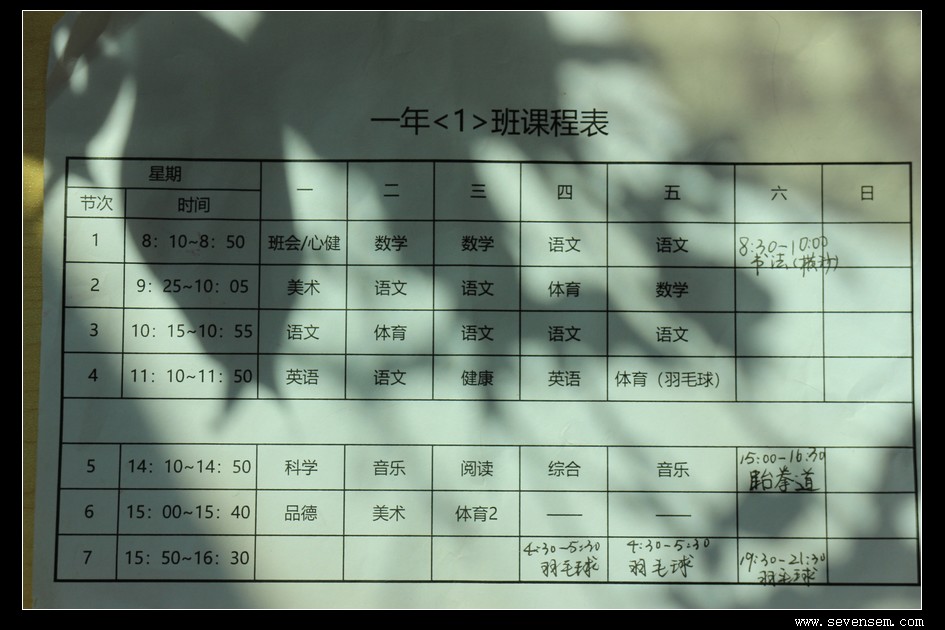 一年<1>班课程表
星期 一 二 三 四 五 六 日
节次 时间
1 8：10~8：50 班会/心健 数学 数学 语文 语文 8:30-10:00
书法
2 9：25~10：05 美术 语文 语文 体育 数学
3 10：15~10：55 语文 体育 语文 语文 语文
4 11：10~11：50 英语 语文 健康 英语 体育（羽毛球）
5 14：10~14：50 科学 音乐 阅读 综合 音乐 15:00-16:30
跆拳道
6 15：00~15：40 品德 美术 体育2 —— ——
7 15：50~16：30 4:30-5:30 4:30-5:30 19:30-21:30
羽毛球 羽毛球 羽毛球
www.sevensem.com